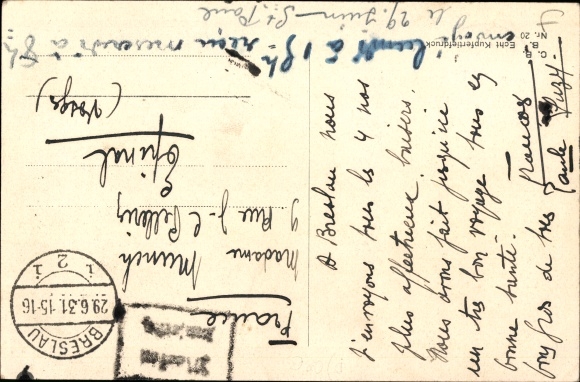 le 29. Juin - St Paul
envoyé lundi à 18h. reçu mercredi à 8h.
C. B. B.
Nr. 20
Echt Kupfertiefdruck
A Breslau nous
t'envoyons tous les 4 nos
plus affectueux baisers.
Nous avons fait jusqu'ici
un très bon voyage tous en
bonne santé.
bons gros de tes
Paule
France
Madame Munch
9 Rue J-C Pellerin
Epinal
(Vosges)
BRESLAU
29.6.31.15-16
i. 2 i.